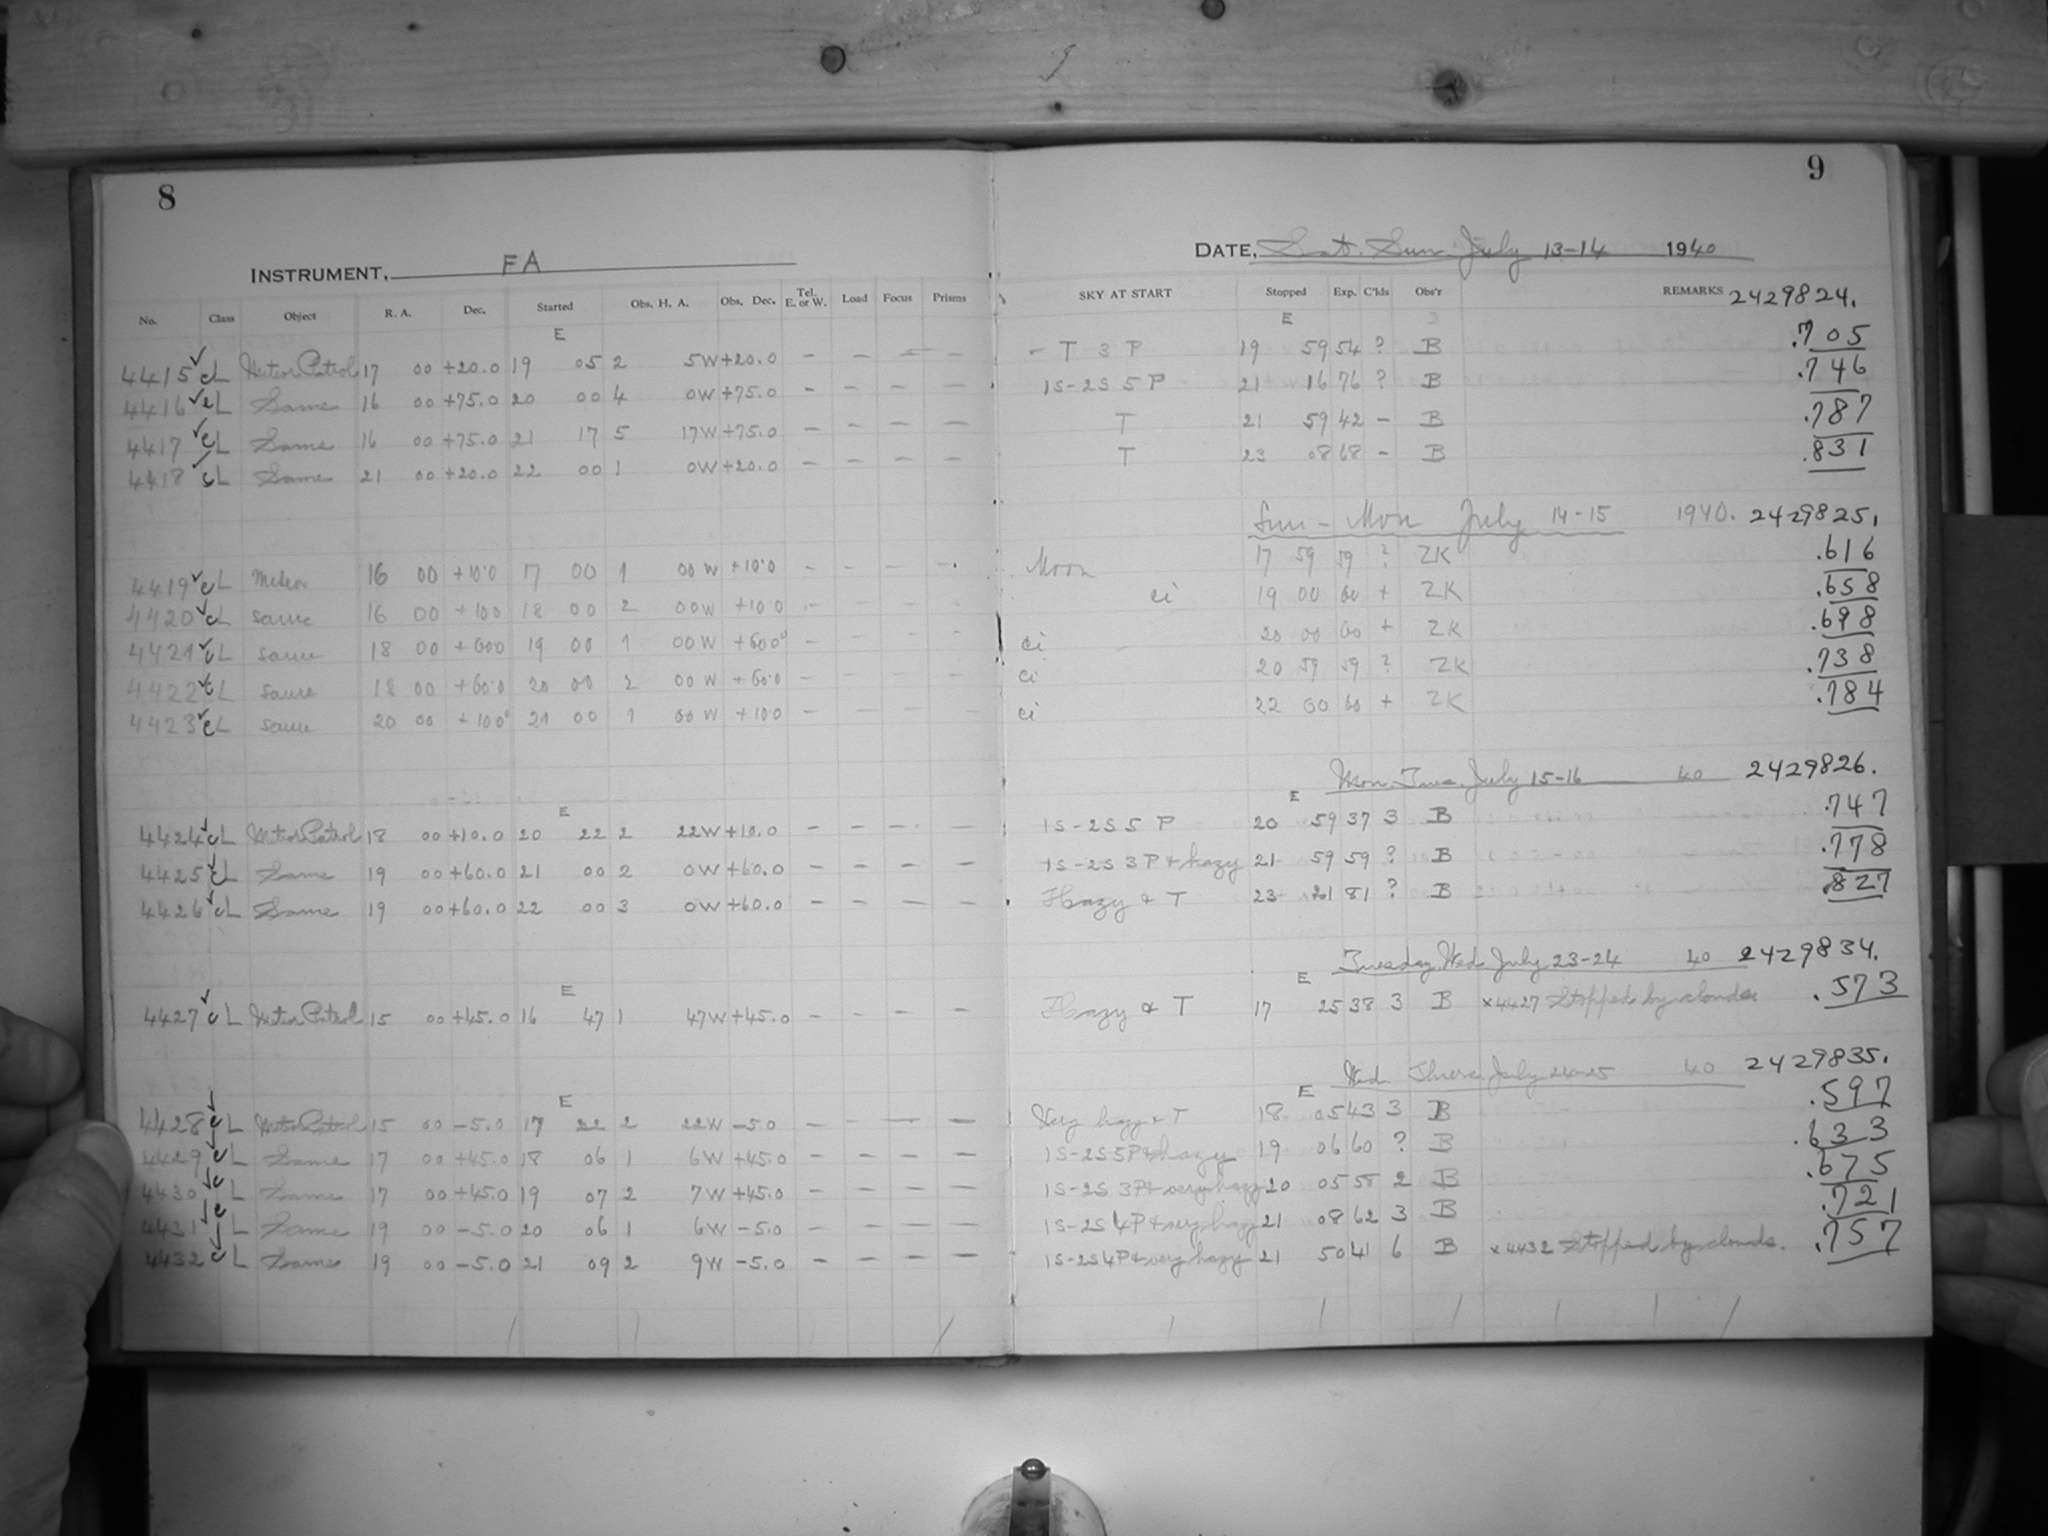 8
INSTRUMENT, FA
No. Class Object R. A. Dec. Started Obs. H. A. Obs. Dec. Tel. E. or W. Load Focus Prisms
E
4415 cL Meteor Patrol 17 00 +20.0 19 05 2 5W +20.0 - - - -
4416 cL Same 16 00 +75.0 20 00 4 0W +75.0 - - - -
4417 cL Same 16 00 +75.0 21 17 5 17W +75.0 - - - -
4418 cL Same 21 00 +20.0 22 00 1 0W +20.0 - - - -
4419 cL Meteor 16 00 +10.0 17 00 1 00 W +10.0 - - - -
4420 cL same 16 00 +100 18 00 2 00W +100 - - - -
4421 cL same 18 00 +600 19 00 1 00W +60.0 - - - -
4422 cL same 18 00 +60.0 20 00 2 00 W +60.0 - - - -
4423 cL same 20 00 +100 21 00 1 00 W +100 - - - -
E
4424 cL Meteor Patrol 18 00 +10.0 20 22 2 22W +10.0 - - - -
4425 cL Same 19 00 +60.0 21 00 2 0W +60.0 - - - -
4426 cL Same 19 00 +60.0 22 00 3 0W +60.0 - - - -
E
4427 cL Meteor Patrol 15 00 +45.0 16 47 1 47W +45.0 - - - -
E
4428 cL Meteor Patrol 15 00 -5.0 17 22 2 22W -5.0 - - - -
4429 cL Same 17 00 +45.0 18 06 1 6W +45.0 - - - -
4430 cL Same 17 00 +45.0 19 07 2 7W +45.0 - - - -
4431 cL Same 19 00 -5.0 20 06 1 6W -5.0 - - - -
4432 cL Same 19 00 -5.0 21 09 2 9W -5.0 - - - -
9
DATE, Sat. Sun. July 13-14 1940
SKY AT START Stopped Exp. C'lds Obs'r REMARKS 2429824.
E
- T 3 P 19 59 54 ? B .705
1S-2S 5 P 21 16 76 ? B .746
T 21 59 42 - B .787
T 23 08 68 - B .831
Sun - Mon July 14-15 1940. 2429825.
Moon 17 59 59 ? ZK .616
ci 19 00 60 + ZK .658
ci 20 00 60 + ZK .698
ci 20 59 59 ? ZK .738
ci 22 00 60 + ZK .784
Mon. Tues. July 15-16 40 2429826.
E
1S-2S 5 P 20 59 37 3 B .747
1S-2S 3P & hazy 21 59 59 ? B .778
Hazy & T 23 21 81 ? B .827
Tuesday Wed July 23-24 40 2429834.
E
Hazy & T 17 25 38 3 B x4427 Stopped by clouds .573
Wed Thurs July 24-25 40 2429835.
E
Very hazy & T 18 05 43 3 B .597
1S-2S 5P & hazy 19 06 60 ? B .633
1S-2S 3P & very hazy 20 05 58 2 B .675
1S-2S 4P & very hazy 21 08 62 3 B .721
1S-2S 4P & very hazy 21 50 41 6 B x4432 Stopped by clouds. .757